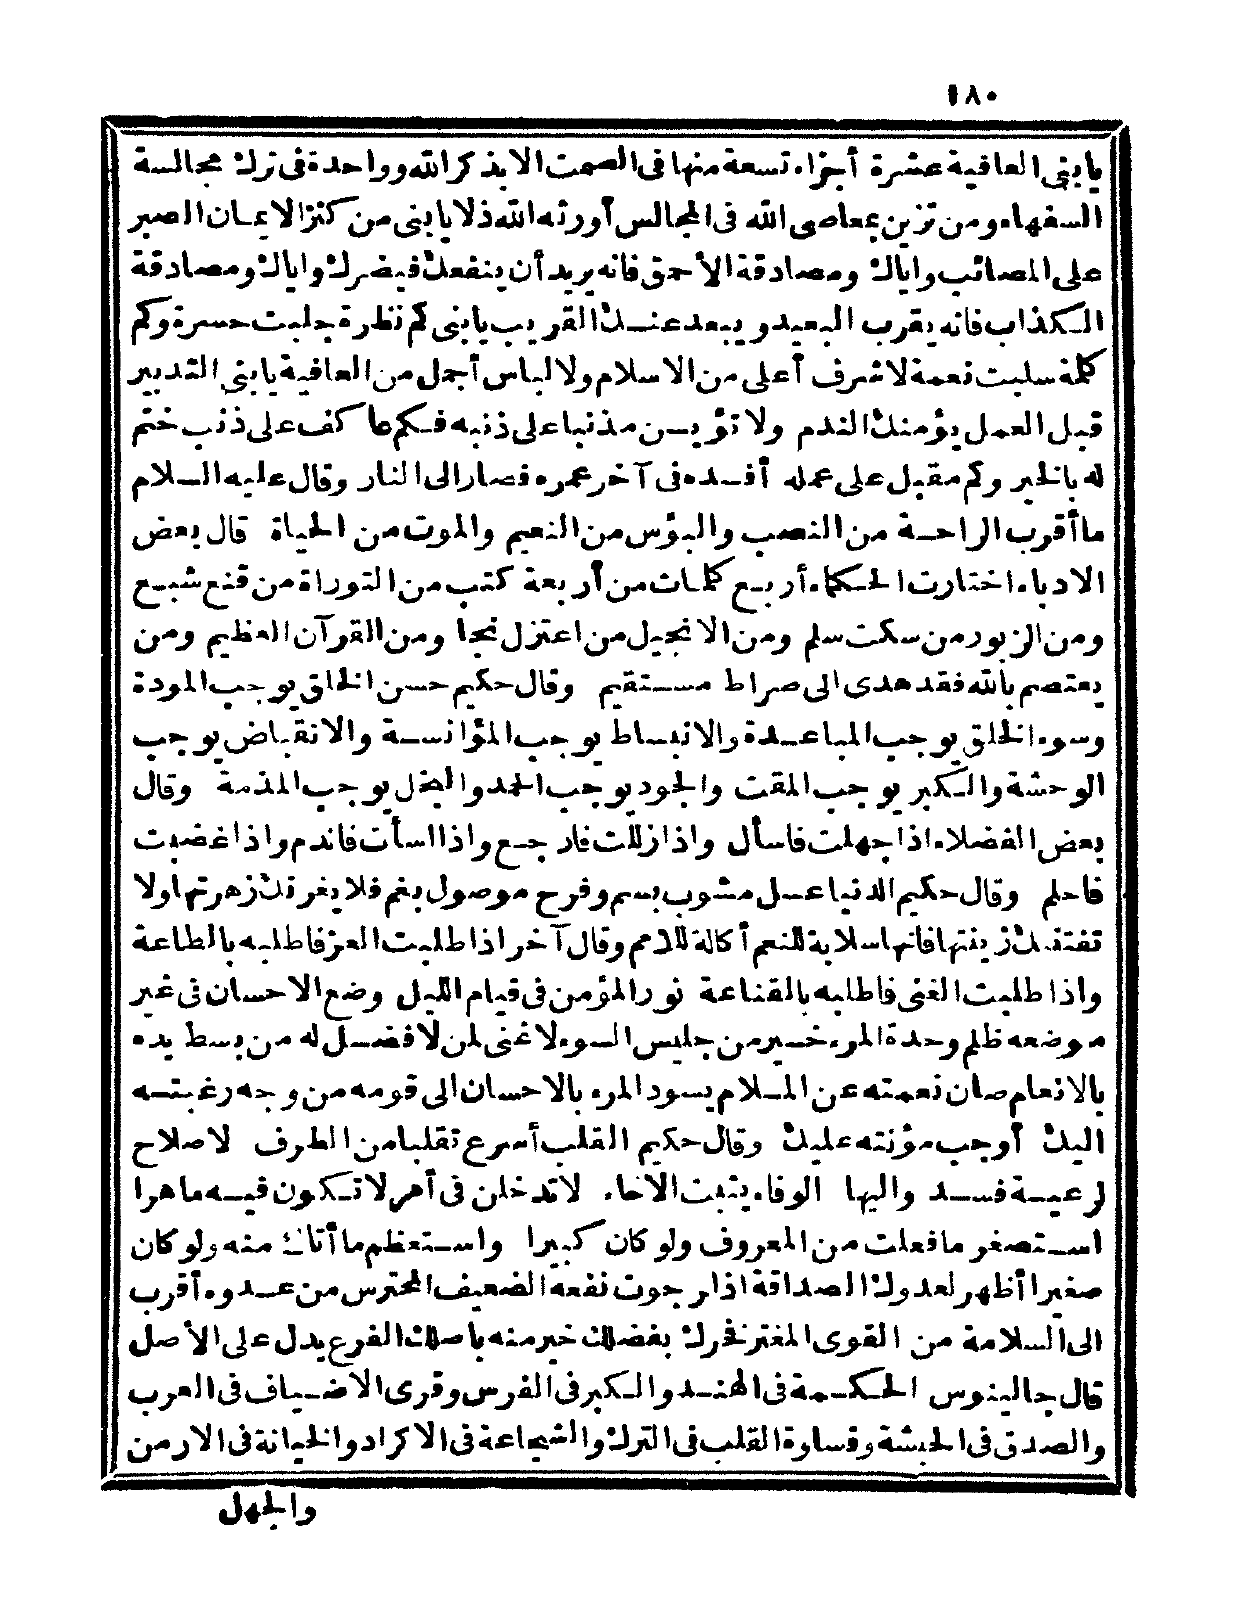 ١٨٠
يا بنى العافية عشرة أجزاء تسعة منها فى الصمت الا بذكر الله وواحدة فى ترك مجالسة
السفهاء ومن تزين بمعاصى الله فى المجالس أورثه الله ذلا يا بنى من كنز الايمان الصبر
على المصائب واياك ومصادقة الأحمق فانه يريد أن ينفعك فيضرك واياك ومصادقة
الكذاب فانه يقرب البعيد و يبعد عنك القريب يا بنى كم نظرة جلبت حسرة وكم
كلمة سلبت نعمة لا شرف أعلى من الاسلام ولا لباس أجمل من العافية يا بنى التدبير
قبل العمل يؤمنك الندم ولا تؤيسن مذنبا على ذنبه فكم عاكف على ذنب ختم
له بالخير وكم مقبل على عمله أفسده فى آخر عمره فصار الى النار وقال عليه السلام
ما أقرب الراحة من النصب والبؤس من النعيم والموت من الحياة قال بعض
الادباء اختارت الحكماء أربع كلمات من أربعة كتب من التوراة من قنع شبع
ومن الزبور من سكت سلم ومن الانجيل من اعتزل نجا ومن القرآن العظيم ومن
يعتصم بالله فقد هدى الى صراط مستقيم وقال حكيم حسن الخلق يوجب المودة
وسوء الخلق يوجب المباعدة والانبساط يوجب المؤانسة والانقباض يوجب
الوحشة والكبر يوجب المقت والجود يوجب الحمد والبخل يوجب المذمة وقال
بعض الفضلاء اذا جهلت فاسأل واذا زللت فارجع واذا اسأت فاندم واذا غضبت
فاحلم وقال حكيم الدنيا عسل مشوب بسم وفرح موصول بغم فلا يغرنك زهرتها ولا
تفتنك زينتها فانها سلابة للنعم أكالة للامم وقال آخر اذا طلبت العز فاطلبه بالطاعة
واذا طلبت الغنى فاطلبه بالقناعة نور المؤمن فى قيام الليل وضع الاحسان فى غير
موضعه ظلم وحدة المرء خير من جليس السوء لا غنى لمن لا فضل له من بسط يده
بالانعام صان نعمته عن الملام يسود المرء بالاحسان الى قومه من وجه رغبته
اليك أوجب مؤنته عليك وقال حكيم القلب أسرع تقلبا من الطرف لا صلاح
لرعية فسد واليها الوفاء ينبت الاخاء لا تدخلن فى أمر لا تكون فيه ماهرا
استصغر ما فعلت من المعروف ولو كان كبيرا واستعظم ما أتاك منه ولو كان
صغيرا أظهر لعدوك الصداقة اذا رجوت نفعه الضعيف المحترس من عدوه أقرب
الى السلامة من القوى المغتر فخرك بفضلك خير منه باصلك الفرع يدل على الأصل
قال جالينوس الحكمة فى الهند والكبر فى الفرس وقرى الاضياف فى العرب
والصدق فى الحبشة وقساوة القلب فى الترك والشجاعة فى الاكراد والخيانة فى الارمن
والجهل